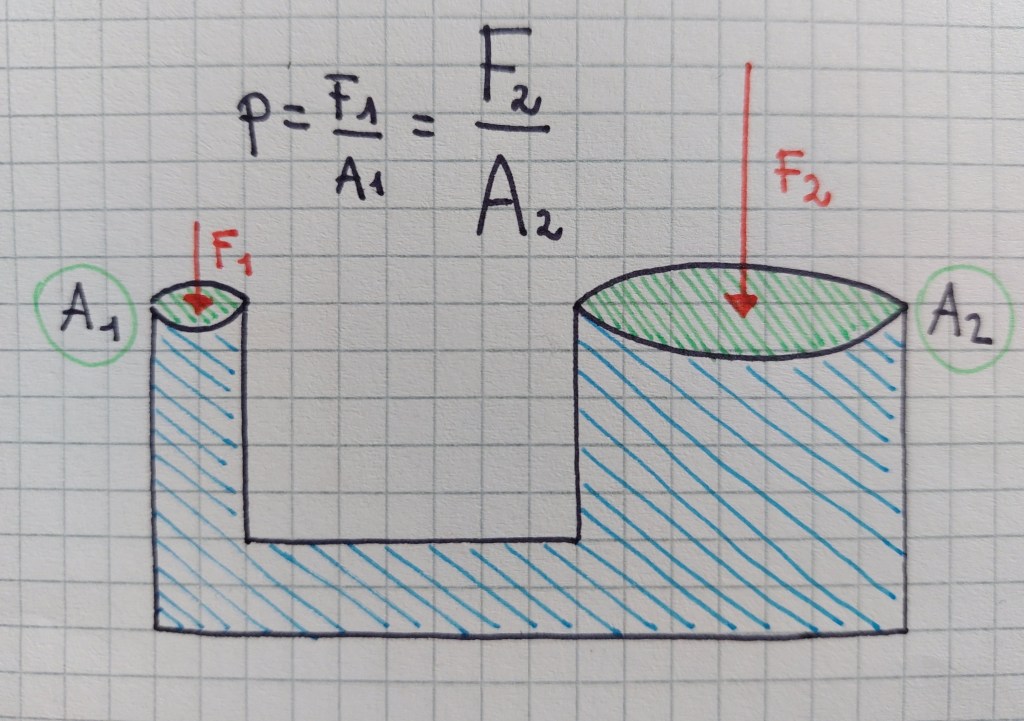 p = F₁/A₁ = F₂/A₂
F₂
F₁
A₁
A₂